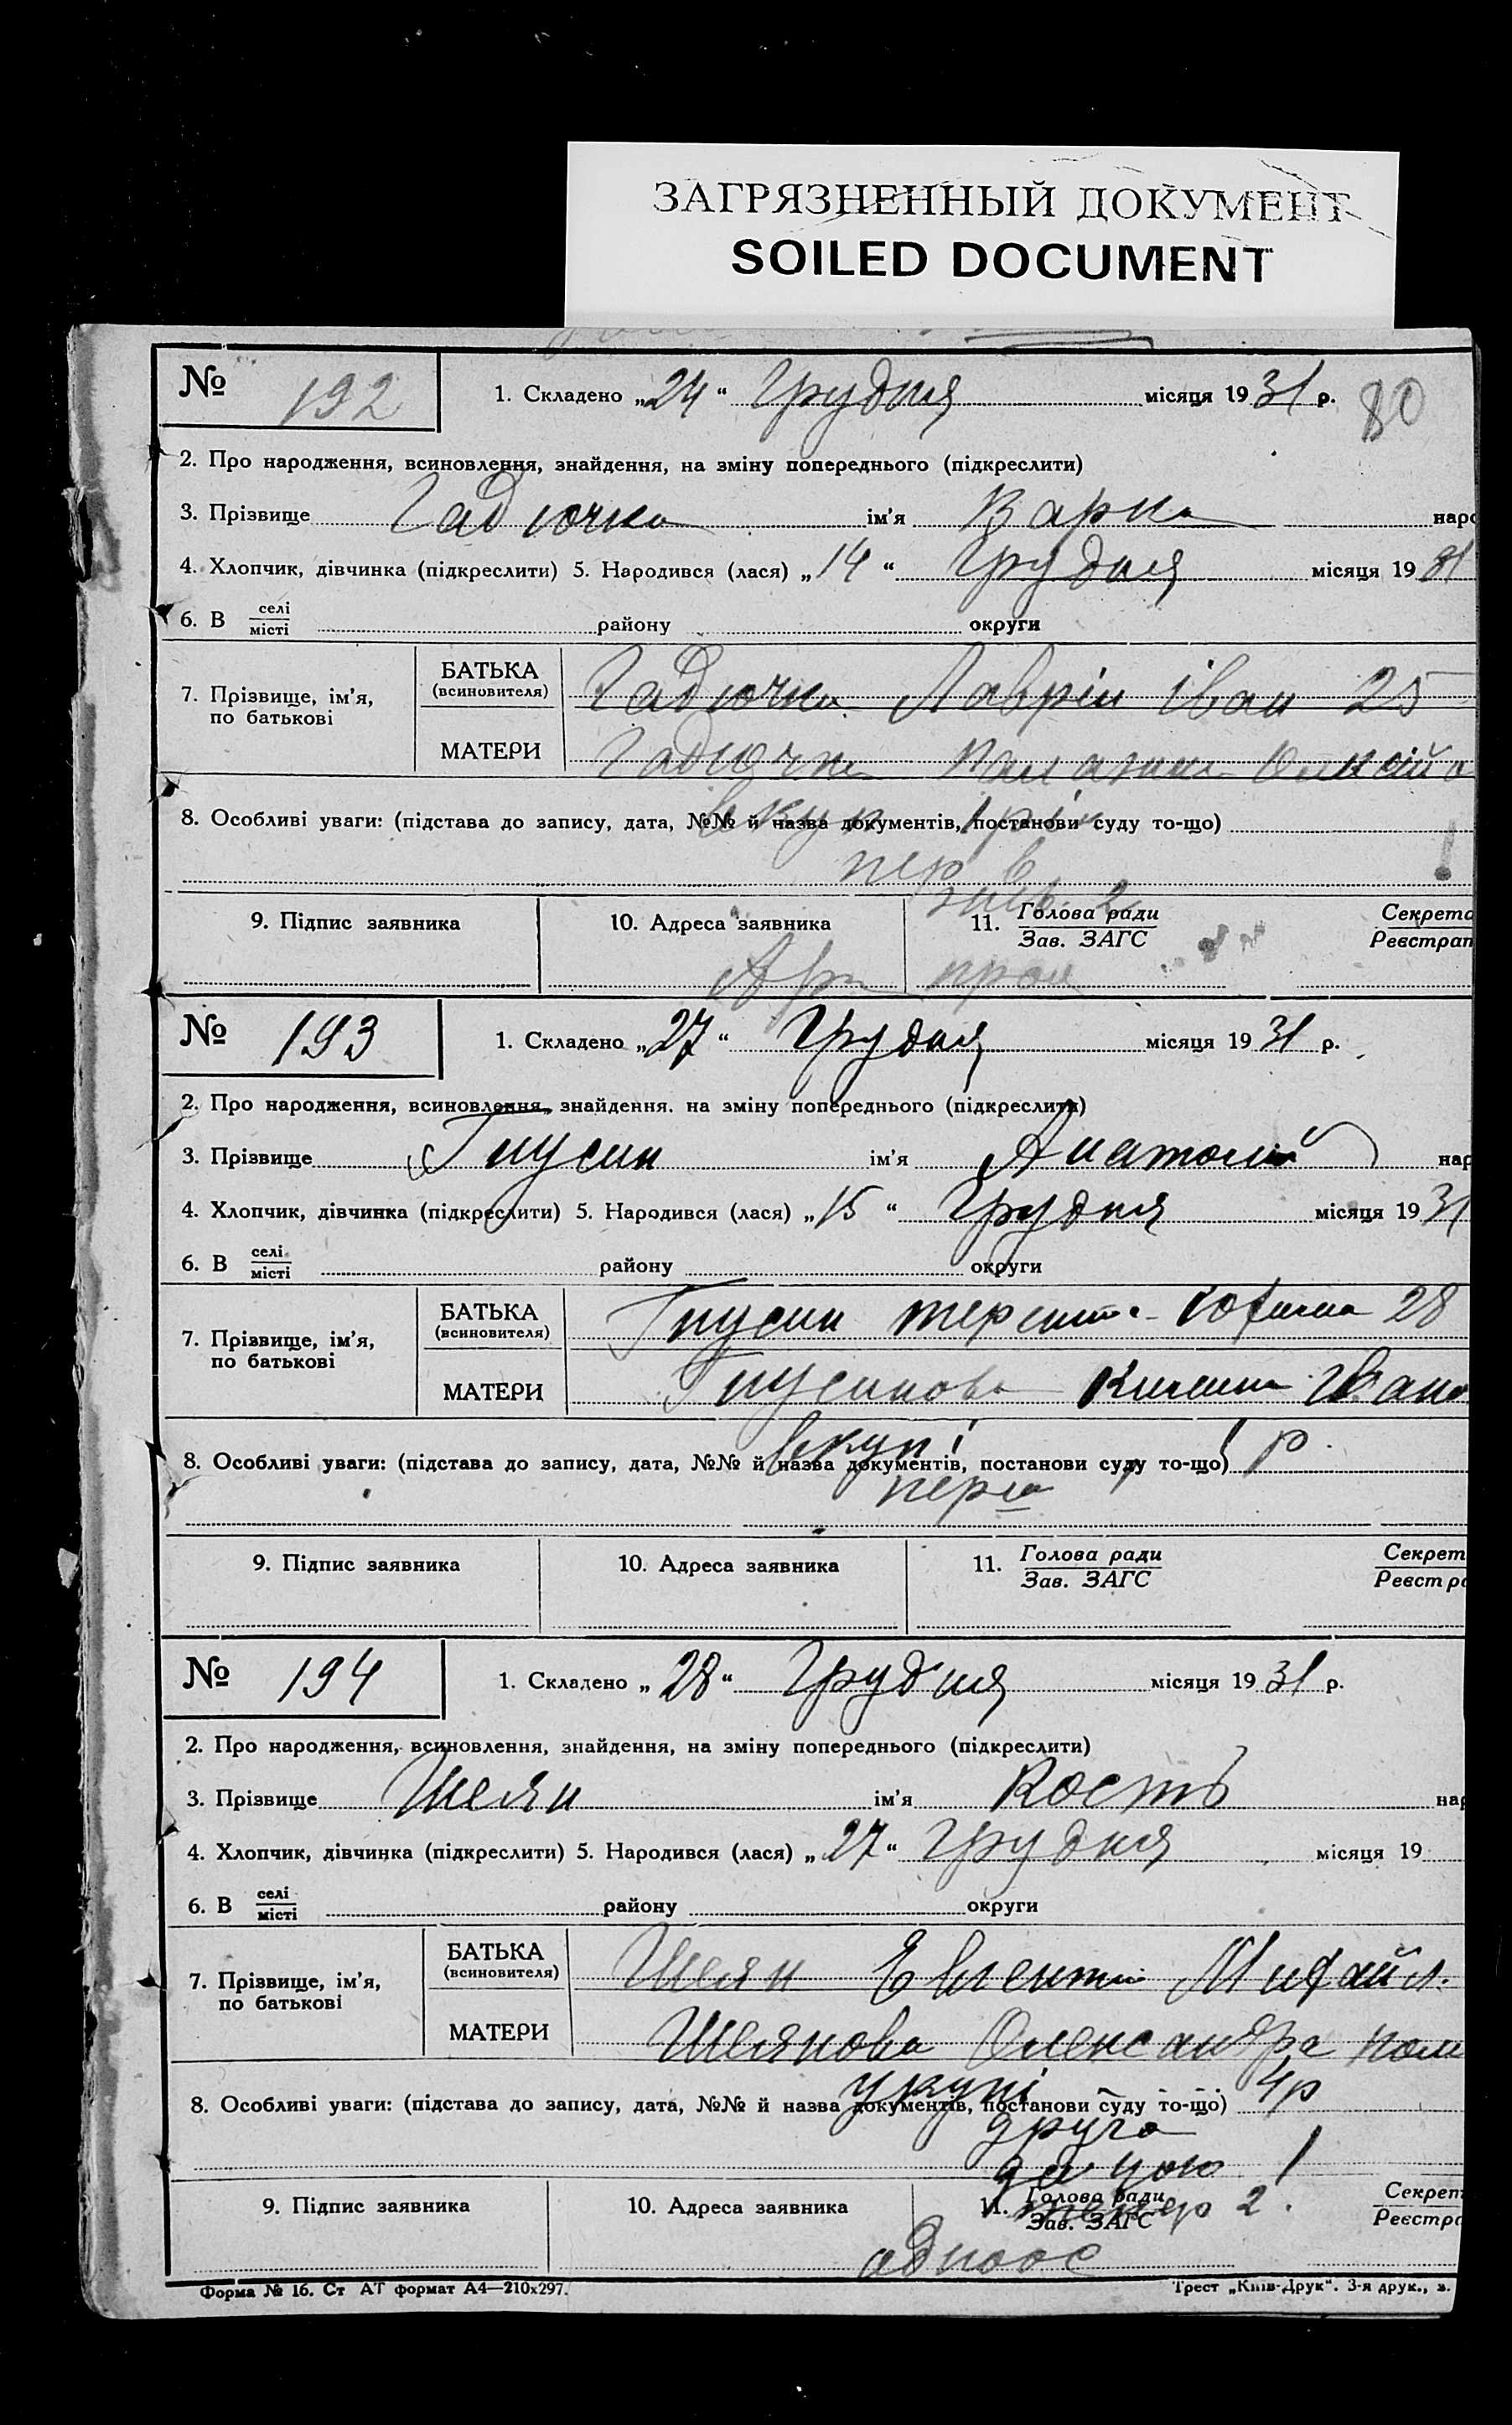 ЗАГРЯЗНЕННЫЙ ДОКУМЕНТ
SOILED DOCUMENT
№ 192 1. Складено „24“ Грудня місяця 1931 р. 80
2. Про народження, всиновлення, знайдення, на зміну попереднього (підкреслити)
3. Прізвище Гадючка ім’я Варка наро
4. Хлопчик, дівчинка (підкреслити) 5. Народився (лася) „14“ Грудня місяця 1931
6. В селі/місті району округи
7. Прізвище, ім’я, по батькові
БАТЬКА (всиновителя) Гадючка Лаврін Іван 25
МАТЕРИ Гадючка
8. Особливі уваги: (підстава до запису, дата, №№ й назва документів, постанови суду то-що)
пер
9. Підпис заявника 10. Адреса заявника 11. Голова ради/Зав. ЗАГС Секрета/Реєстрат
№ 193 1. Складено „27“ Грудня місяця 1931 р.
2. Про народження, всиновлення, знайдення. на зміну попереднього (підкреслити)
3. Прізвище Гнусин ім’я Анатолій нар
4. Хлопчик, дівчинка (підкреслити) 5. Народився (лася) „15“ Грудня місяця 1931
6. В селі/місті району округи
7. Прізвище, ім’я, по батькові
БАТЬКА (всиновителя) Гнусин 28
МАТЕРИ Гнусинова
вкупі 1 р.
8. Особливі уваги: (підстава до запису, дата, №№ й назва документів, постанови суду то-що)
перш
9. Підпис заявника 10. Адреса заявника 11. Голова ради/Зав. ЗАГС Секрет/Реєстра
№ 194 1. Складено „28“ Грудня місяця 1931 р.
2. Про народження, всиновлення, знайдення, на зміну попереднього (підкреслити)
3. Прізвище Шелян ім’я Кость нар
4. Хлопчик, дівчинка (підкреслити) 5. Народився (лася) „27“ Грудня місяця 19
6. В селі/місті району округи
7. Прізвище, ім’я, по батькові
БАТЬКА (всиновителя) Шелян Михайл.
МАТЕРИ Шелянова Олександра
укупі 4р
8. Особливі уваги: (підстава до запису, дата, №№ й назва документів, постанови суду то-що)
друга
за цою 1
9. Підпис заявника 10. Адреса заявника 11. Голова ради/Зав. ЗАГС 2. Секрет/Реєстра
одноос
Форма № 16. Ст АТ формат А4—210х297. Трест „Київ-Друк“. 3-я друк., з.